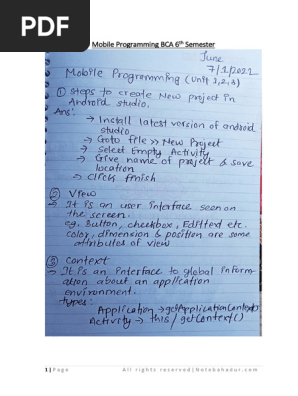 PDF
Mobile Programming BCA 6th Semester
June
7/1/2022
Mobile Programming (Unit 1,2,3)
① Steps to create New project in
Android studio.
Ans:
→ Install latest version of android
studio
→ Goto file >> New Project
→ Select Empty Activity
→ Give name of project & save
location
→ click finish
② View
→ It is an user interface seen on
the screen.
eg. Button, checkbox, Edittext etc.
color, dimension & position are some
attributes of view
③ Context
→ It is an interface to global inform-
ation about an application
environment.
types:
Application → getApplicationContext()
Activity → this / getContext()
1 | Page
All rights reserved|Notebahadur.com